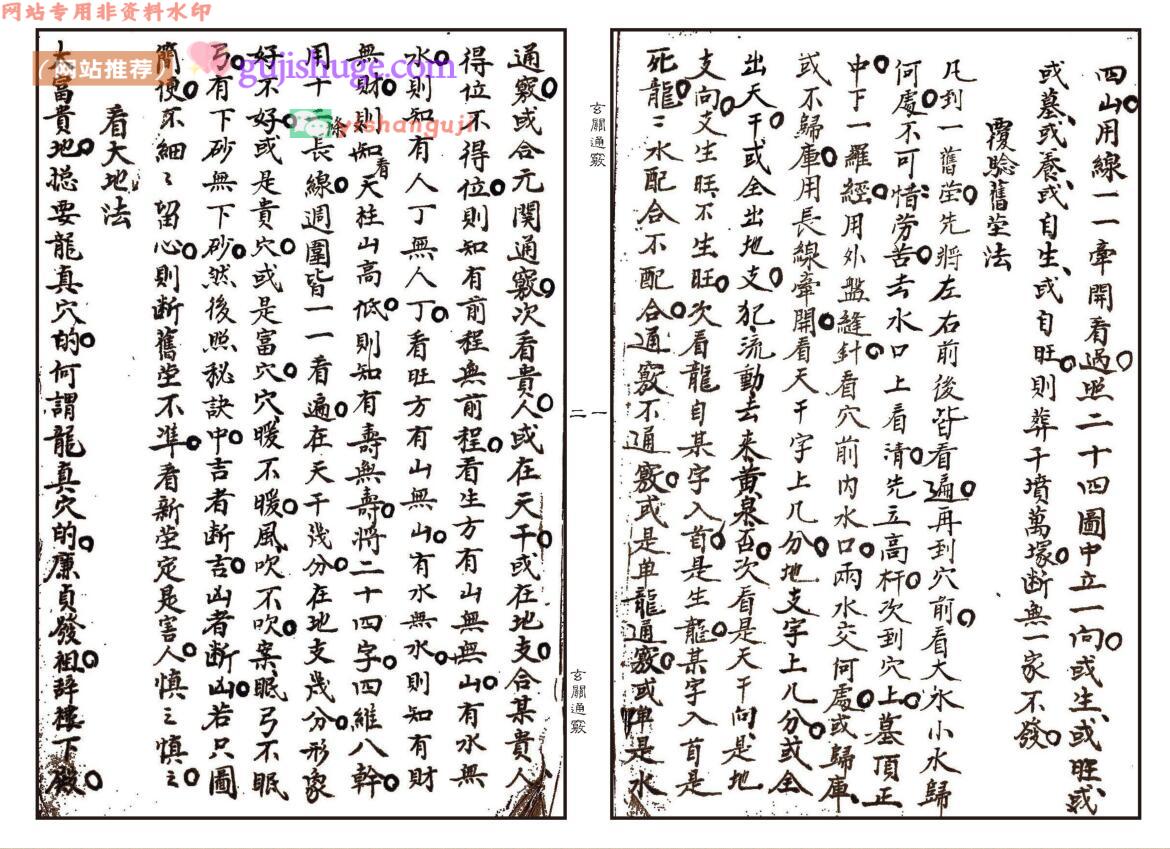 网站专用非资料水印
四山用線一一牽開看過照二十四圖中立一向或生或旺或
或墓或養或自生或自旺則葬千墳萬塚断無一家不發
覆驗舊塋法
凡到一舊塋先將左右前後皆看遍再到穴前看大水小水歸
何處不可惜劳苦去水口上看清先立高杆次到穴上墓頂正
中下一羅經用外盤縫針看穴前内水口兩水交何處或歸庫
或不歸庫用長線牽開看天干字上几分地支字上几分或全
出天干或全出地支犯流動去来黄泉否次看是天干向是地
支向支生旺不生旺次看龍自某字入首是生龍某字入首是
死龍〻水配合不配合通竅不通竅或是单龍通竅或单是水
玄關通竅
一
二
玄關通竅
通竅或合元関通竅次看貴人或在天干或在地支合某貴人
得位不得位則知有前程無前程看生方有山無山有水無
水則知有人丁無人丁看旺方有山無山有水無水則知有財
無財則知看天柱山高低則知有壽無壽將二十四字四維八幹
用十二條長線週圍皆一一看遍在天干幾分在地支幾分形象
好不好或是貴穴或是富穴穴暖不暖風吹不吹案眠弓不眠
弓有下砂無下砂然後照秘訣中吉者断吉凶者断凶若只圖
簡便不細〻留心則断舊塋不準看新塋定是害人慎之慎之
看大地法
大富貴地揔要龍真穴的何謂龍真穴的廉貞發祖辞樓下殿
（网站推荐）
gujishuge.com
yishanguji